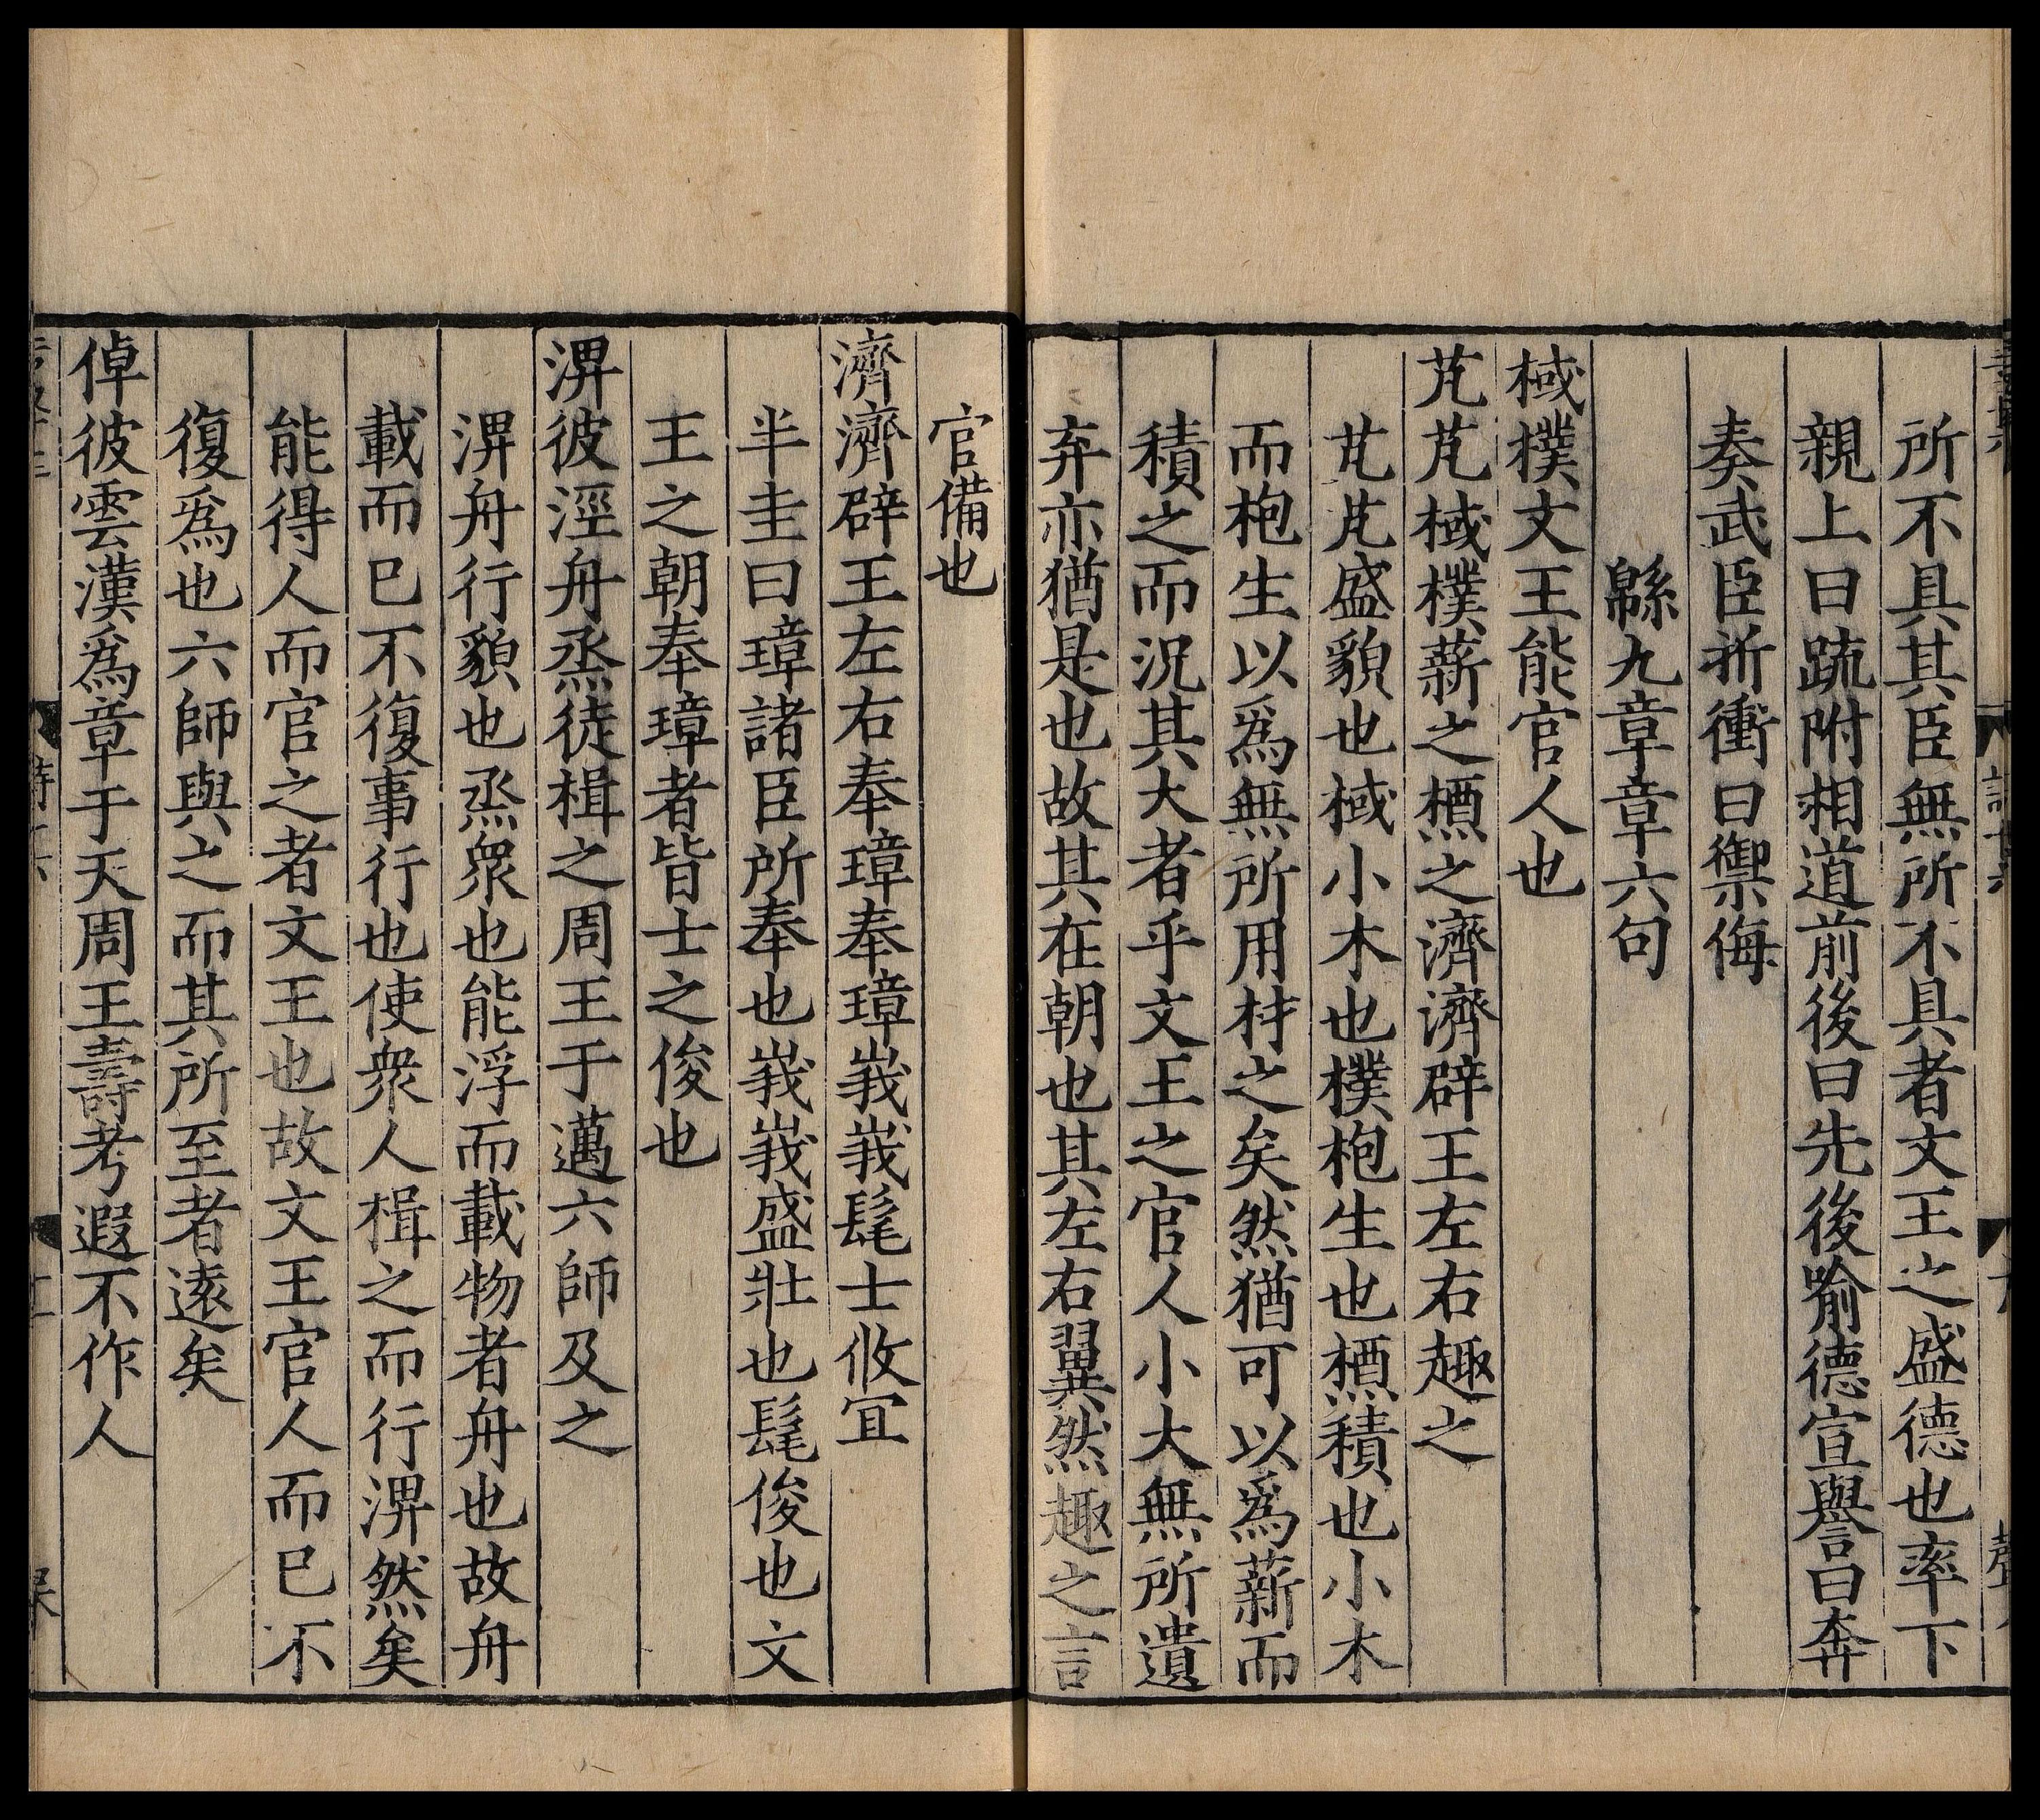 所不具其臣無所不具者文王之盛德也率下
親上曰䟽附相道前後曰先後喻德宣譽曰奔
奏武臣折衝曰禦侮
緜九章章六句
棫樸文王能官人也
芃芃棫樸薪之槱之濟濟辟王左右趣之
芃芃盛貌也棫小木也樸枹生也槱積也小木
而枹生以爲無所用材之矣然猶可以爲薪而
積之而況其大者乎文王之官人小大無所遺
弃亦猶是也故其在朝也其左右翼然趣之言
官備也
濟濟辟王左右奉璋奉璋峩峩髦士攸宜
半圭曰璋諸臣所奉也峩峩盛壯也髦俊也文
王之朝奉璋者皆士之俊也
淠彼涇舟烝徒楫之周王于邁六師及之
淠舟行貌也烝衆也能浮而載物者舟也故舟
載而已不復事行也使衆人楫之而行淠然矣
能得人而官之者文王也故文王官人而已不
復爲也六師與之而其所至者遠矣
倬彼雲漢爲章于天周王壽考遐不作人